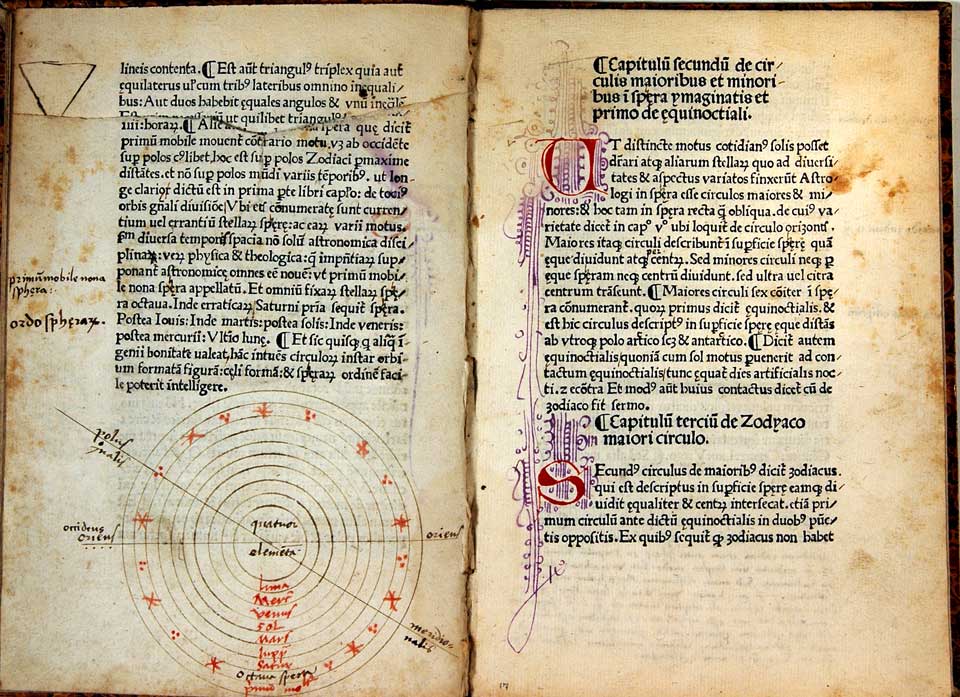 lineis contenta. ¶ Est aūt triangulꝰ triplex quia aut
equilaterus ul' cum tribꝰ lateribus omnino inequali/
bus: Aut duos habebit ęquales angulos & vnū
ut quilibet triangulꝰ
spera quę dicit̄
primū mobile mouent̄ cōtrario motu, vꝫ ab occidēte
sup polos hoc est sup polos Zodiaci ꝑmaxime
distātes. et nō sup polos mūdi variis tēporibꝰ. ut lon/
ge clariꝰ dictū est in prima pte libri capľo: de tociꝰ
orbis gńali diuisiōe. Vbi etc̄ cōnumeratę sunt curren/
tium uel errantiū stellaꝝ spęre: ac eaꝝ varii motus.
diuersa temporis spacia nō solū astronomica disci/
plina physica & theologica: ꝙ impn̄tiaꝝ sup/
ponant astronomicę omnes eē nouē: vt primū mobi/
le nona spera appellatū. Et omniū fixaꝝ stellaꝝ spę/
ra octaua. Inde erraticaꝝ Saturni pria sequit̄ spera.
Postea Iouis: Inde martis: postea solis: Inde veneris:
postea mercurii: Vltīo lunę. ¶ Et sic quisq̨ q̨ aliq̄ i/
genii bonitate ualeat, hāc intuēs circuloꝝ instar orbi/
um formatā figurā: cęli formā: & speraꝝ ordinē faci/
le poterit intelligere.
primū mobile nona
sphęra:.
ordo sphęraꝝ.
polus
occidens
oriens
quatuor
elemēta
oriens
luna
Merc
venus
sol
Mars
Jupp
Satur
octaua spera
primū mo
meridio/
nalis
¶ Capitulū secundū de cir/
culis maioribus et minori/
bus ī spęra ymaginatis et
primo de ęquinoctiali.
UT distincte motus cotidianꝰ solis posset
dn̄ari atq̨ aliarum stellaꝝ quo ad diuersi/
tates & aspectus variatos finxerūt Astro/
logi in spęra esse circulos maiores & mi/
nores: & hoc tam in spęra recta q̄ obliqua. de cuiꝰ va/
rietate dicet̄ in capᵒ vᵒ ubi loquit̄ de circulo oriżont̄.
Maiores itaq̨ circuli describunt̄ ī supficie spęrę quā
ęque diuidunt atq̨ per centꝝ. Sed minores circuli neq̨ ꝑ
ęque spęram neq̨ centrū diuidunt. sed ultra uel citra
centrum trāseunt. ¶ Maiores circuli sex cōiter ī spę/
ra cōnumerant̄. quoꝝ primus dicit̄ ęquinoctialis. &
est hic circulus descriptꝰ in supficie spęrę ęque distās
ab vtroq̨ polo artico scꝫ & antartico. ¶ Dicit̄ autem
ęquinoctialis, quoniā cum sol motus puenerit ad con/
tactum ęquinoctialis, tunc ęquat̄ dies artificialis noc/
ti. z ecōtra Et modꝰ aūt huius contactus dicet̄ cū de
zodiaco fit sermo.
¶ Capitulū terciū de Zodyaco
maiori circulo.
SEcundꝰ circulus de maioribꝰ dicit̄ zodiacus.
qui est descriptus in supficie spęrę eamq̨ di/
uidit ęqualiter & centꝝ intersecat. etiā pri/
mum circulū ante dictū ęquinoctialis in duobꝰ pūc/
tis oppositis. Ex quibꝰ sequit̄ ꝙ zodiacus non habet